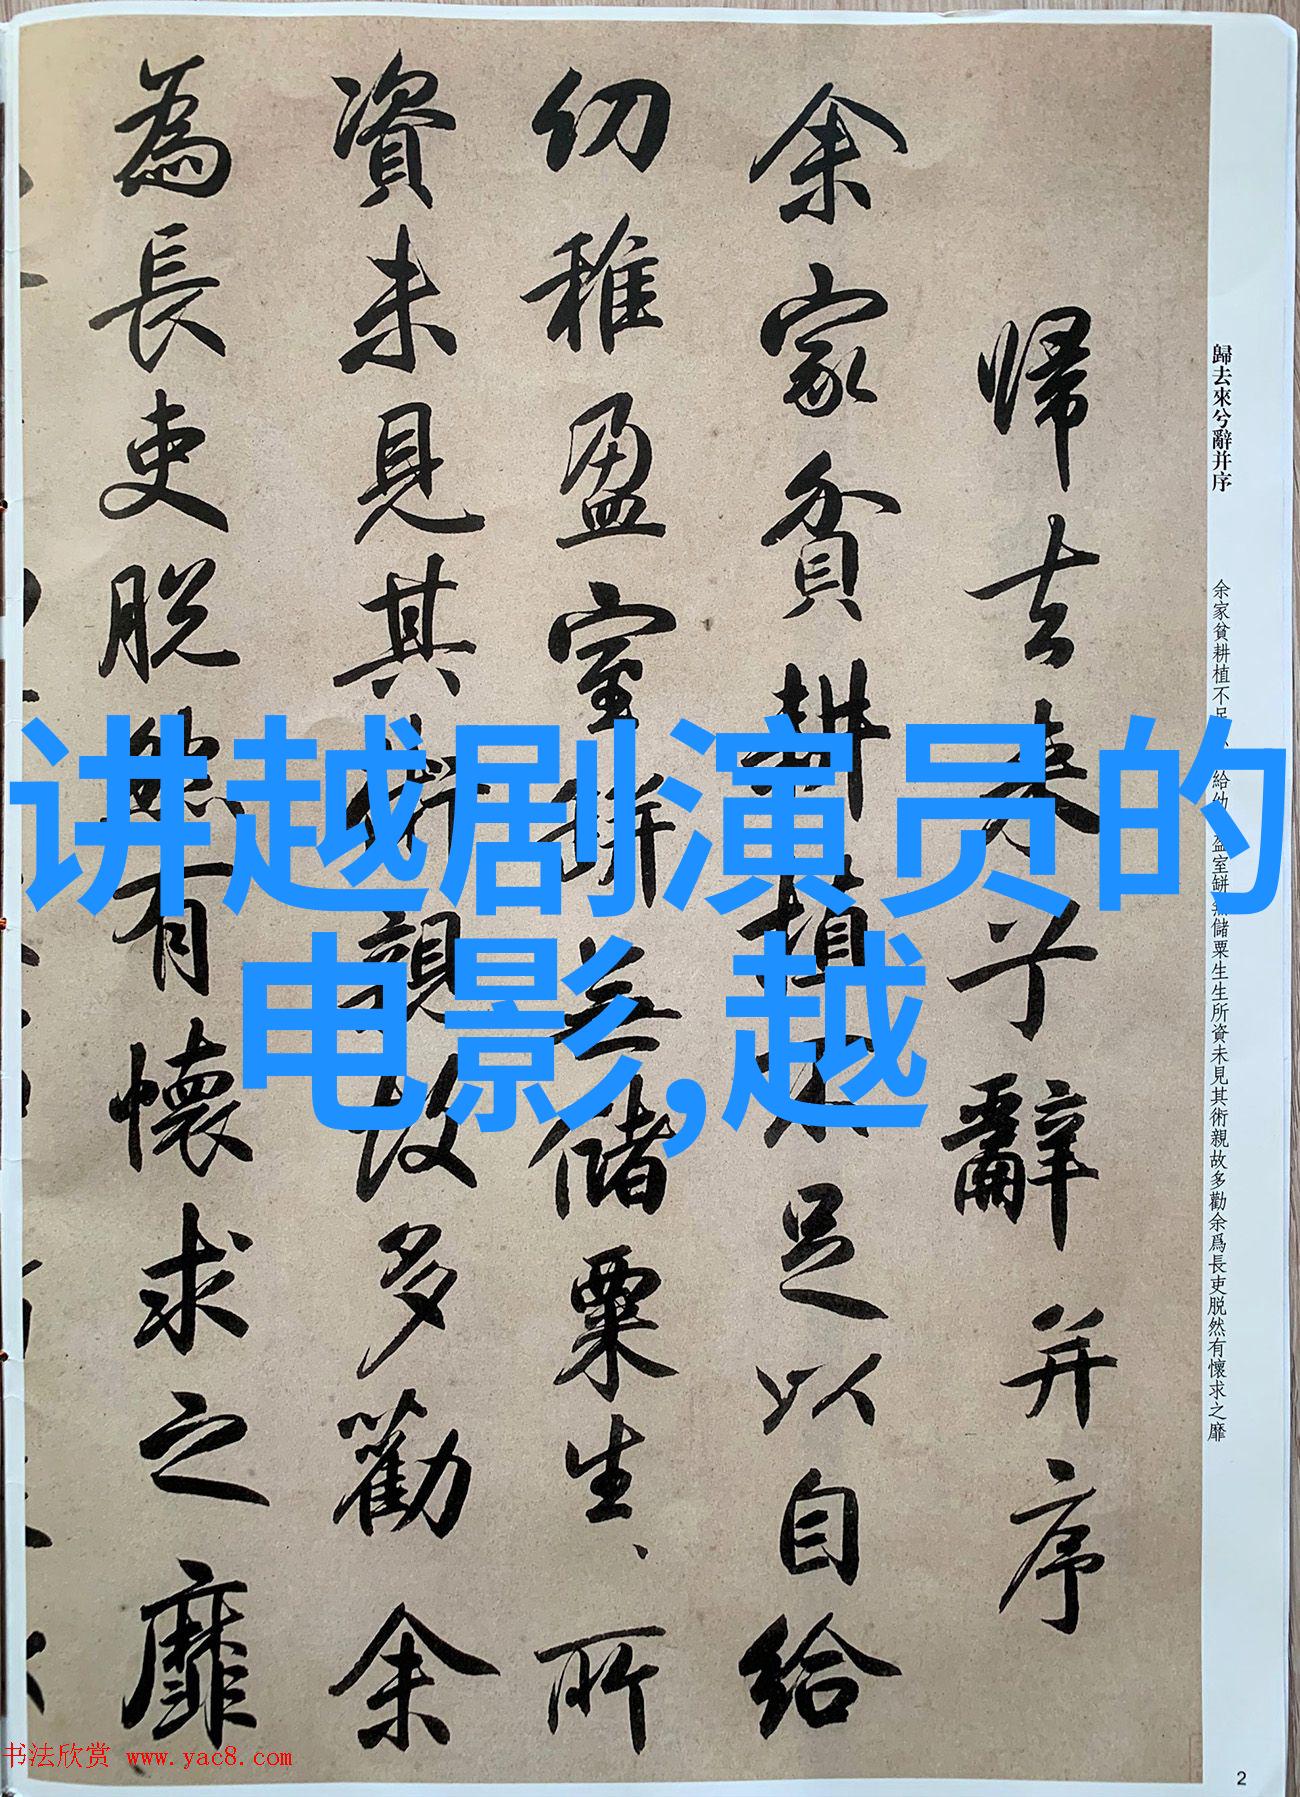 讲越剧演员的
电影,越
歸去來兮辭并序
余家貧耕植不足
給幼
盈室缾無儲粟生生所資未見其術親故多勸余爲長吏脱然有懷求之靡
歸去来兮辭并序
余家貧耕植不足以自給
幼稚盈室缾無儲粟生、所
資未見其術親故多勸余
為長吏脱然有懷求之靡
书法欣赏 www.yac8.com
2